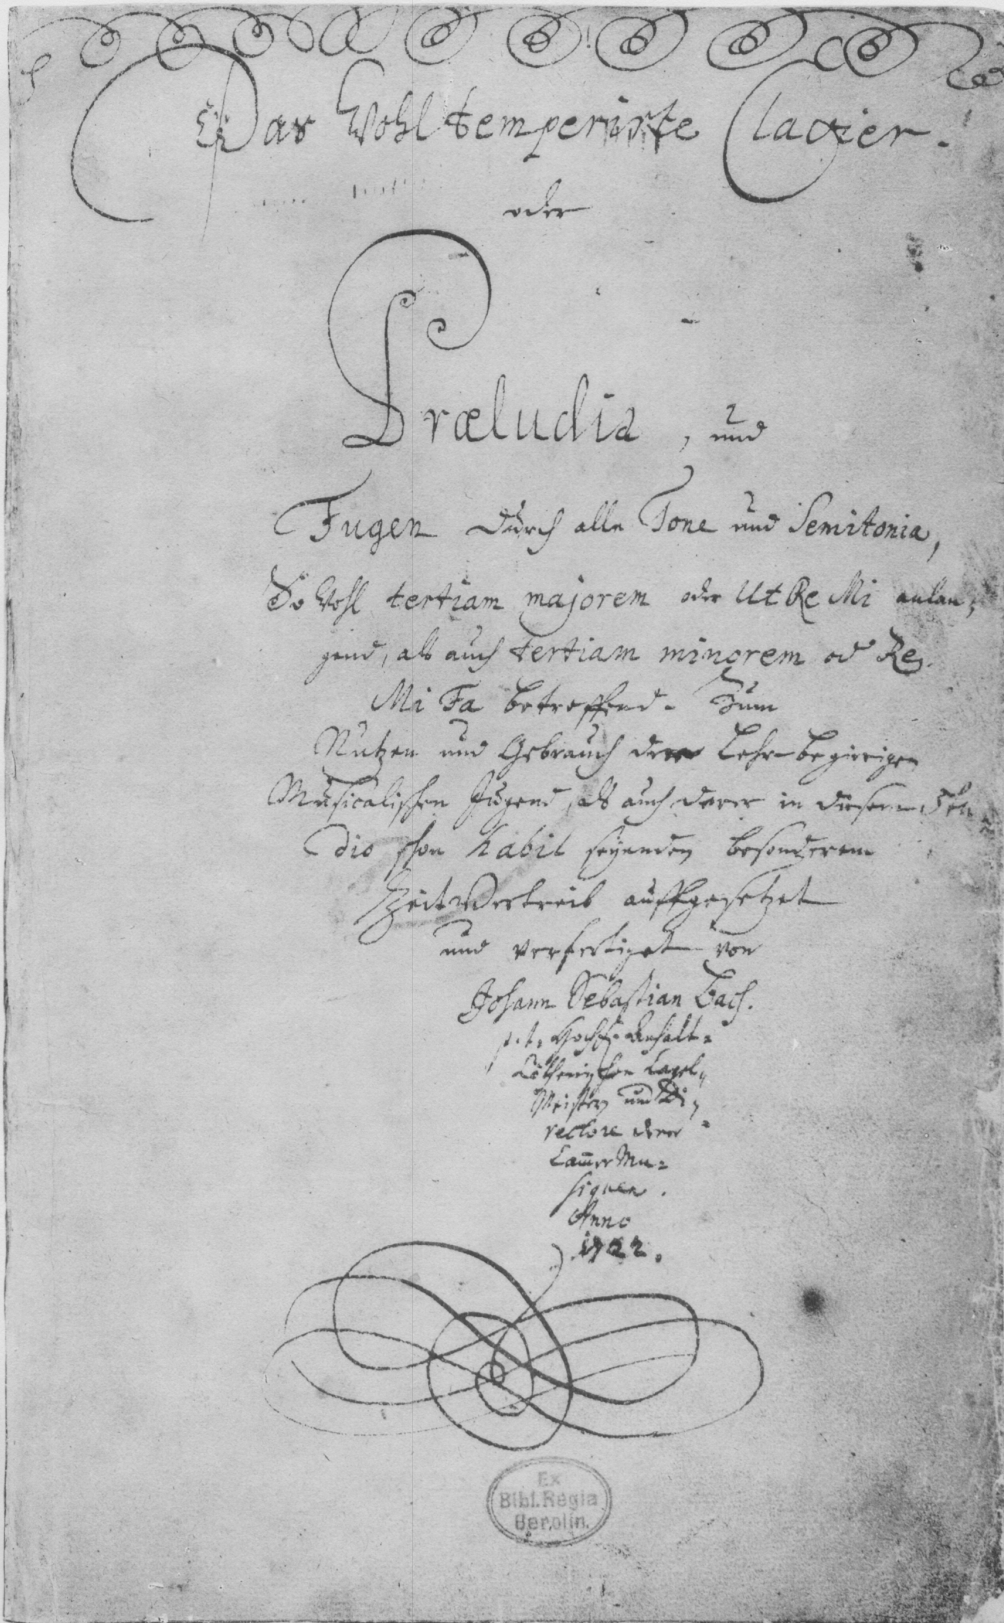 Das Wohltemperirte Clavier.
oder
Præludia, und
Fugen durch alle Tone und Semitonia,
So wohl tertiam majorem oder Ut Re Mi anlan-
gend, als auch tertiam minorem oder Re
Mi Fa betreffend. Zum
Nutzen und Gebrauch der Lehr-begierigen
Musicalischen Jugend, als auch derer in diesem stu-
dio schon habil seyenden besonderem
ZeitVertreib auffgesetzet
und verfertiget von
Johann Sebastian Bach.
p. t. HochF. Anhalt-
Cöthenischen Capel-
Meistern und Di-
rectore derer
CammerMu-
siquen.
Anno
1722.
Ex
Bibl. Regia
Berolin.